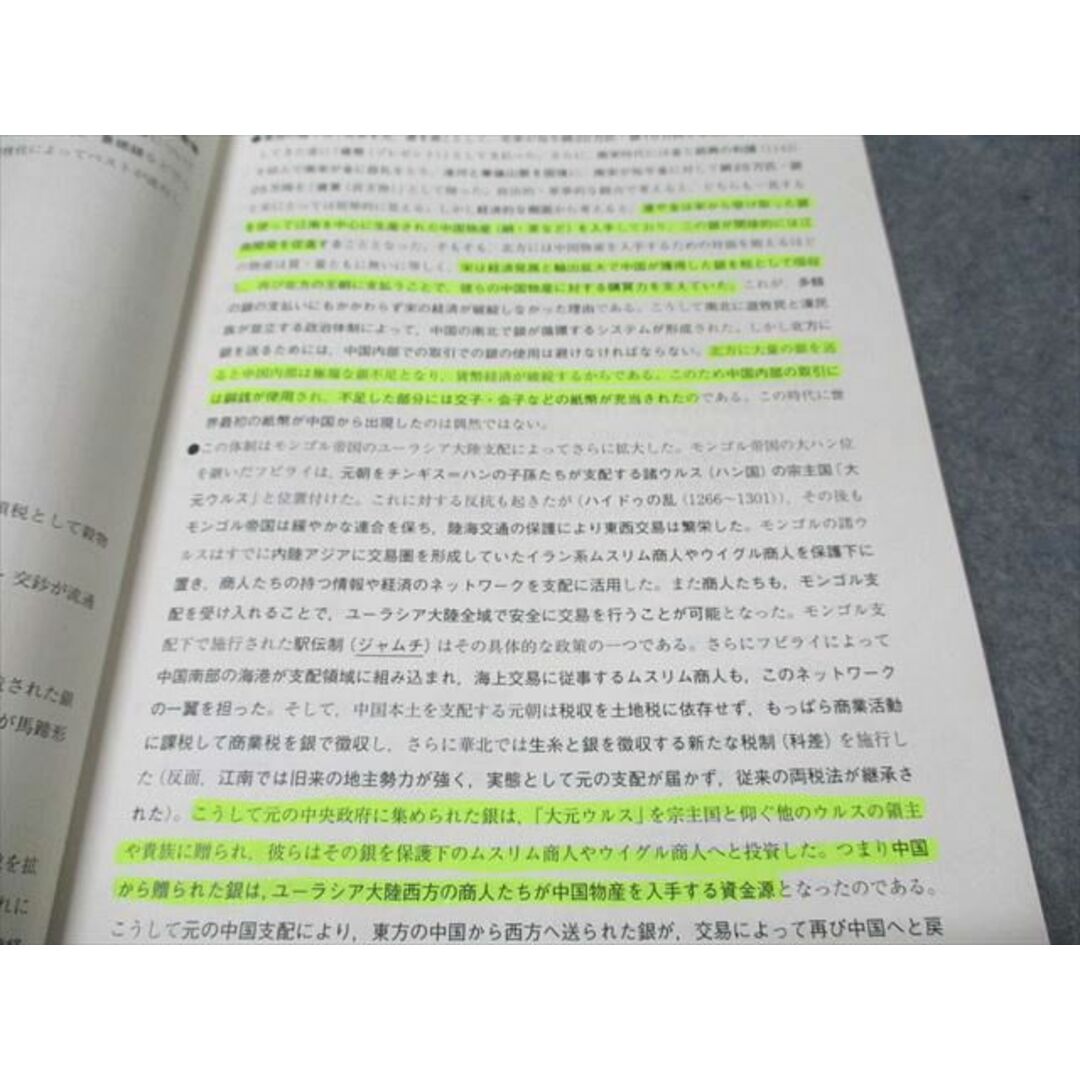 してきた遼に「
とっては
しかし経済的な側面から考えると、遼や金は宋から受け取った銀
を使って江南を中心に生産された中国物産（絹・茶など）を入手しており、この銀が間接的には江
南開発を促進することとなった。そもそも、北方には中国物産を入手するための対価を賄えるほど
の物産は質・量ともに無いに等しく、宋は経済発展と輸出拡大で中国が獲得した銀を税として吸収
し、再び北方の王朝に支払うことで、彼らの中国物産に対する購買力を支えていた。これが、多額
の銀の支払いにもかかわらず宋の経済が破綻しなかった理由である。こうして南北に遊牧民と漢民
族が並立する政治体制によって、中国の南北で銀が循環するシステムが形成された。しかし北方に
銀を送るためには、中国内部での取引での銀の使用は避けなければならない。北方に大量の銀を送
ると中国内部は極端な銀不足となり、貨幣経済が破綻するからである。このため中国内部の取引に
は銅銭が使用され、不足した部分には交子・会子などの紙幣が充当されたのである。この時代に世
界最初の紙幣が中国から出現したのは偶然ではない。
●この体制はモンゴル帝国のユーラシア大陸支配によってさらに拡大した。モンゴル帝国の大ハン位
を継いだフビライは、元朝をチンギス＝ハンの子孫たちが支配する諸ウルス（ハン国）の宗主国「大
元ウルス」と位置付けた。これに対する反抗も起きたが（ハイドゥの乱（1266〜1301））、その後も
モンゴル帝国は緩やかな連合を保ち、陸海交通の保護により東西交易は繁栄した。モンゴルの諸ウ
ルスはすでに内陸アジアに交易圏を形成していたイラン系ムスリム商人やウイグル商人を保護下に
置き、商人たちの持つ情報や経済のネットワークを支配に活用した。また商人たちも、モンゴル支
配を受け入れることで、ユーラシア大陸全域で安全に交易を行うことが可能となった。モンゴル支
配下で施行された駅伝制（ジャムチ）はその具体的な政策の一つである。さらにフビライによって
中国南部の海港が支配領域に組み込まれ、海上交易に従事するムスリム商人も、このネットワーク
の一翼を担った。そして、中国本土を支配する元朝は税収を土地税に依存せず、もっぱら商業活動
に課税して商業税を銀で徴収し、さらに華北では生糸と銀を徴収する新たな税制（科差）を施行し
た（反面、江南では旧来の地主勢力が強く、実態として元の支配が届かず、従来の両税法が継承さ
れた）。こうして元の中央政府に集められた銀は、「大元ウルス」を宗主国と仰ぐ他のウルスの領主
や貴族に贈られ、彼らはその銀を保護下のムスリム商人やウイグル商人へと投資した。つまり中国
から贈られた銀は、ユーラシア大陸西方の商人たちが中国物産を入手する資金源となったのである。
こうして元の中国支配により、東方の中国から西方へ送られた銀が、交易によって再び中国へと戻
税として穀物
交鈔が流通
された銀
が馬蹄形
を拡
れに